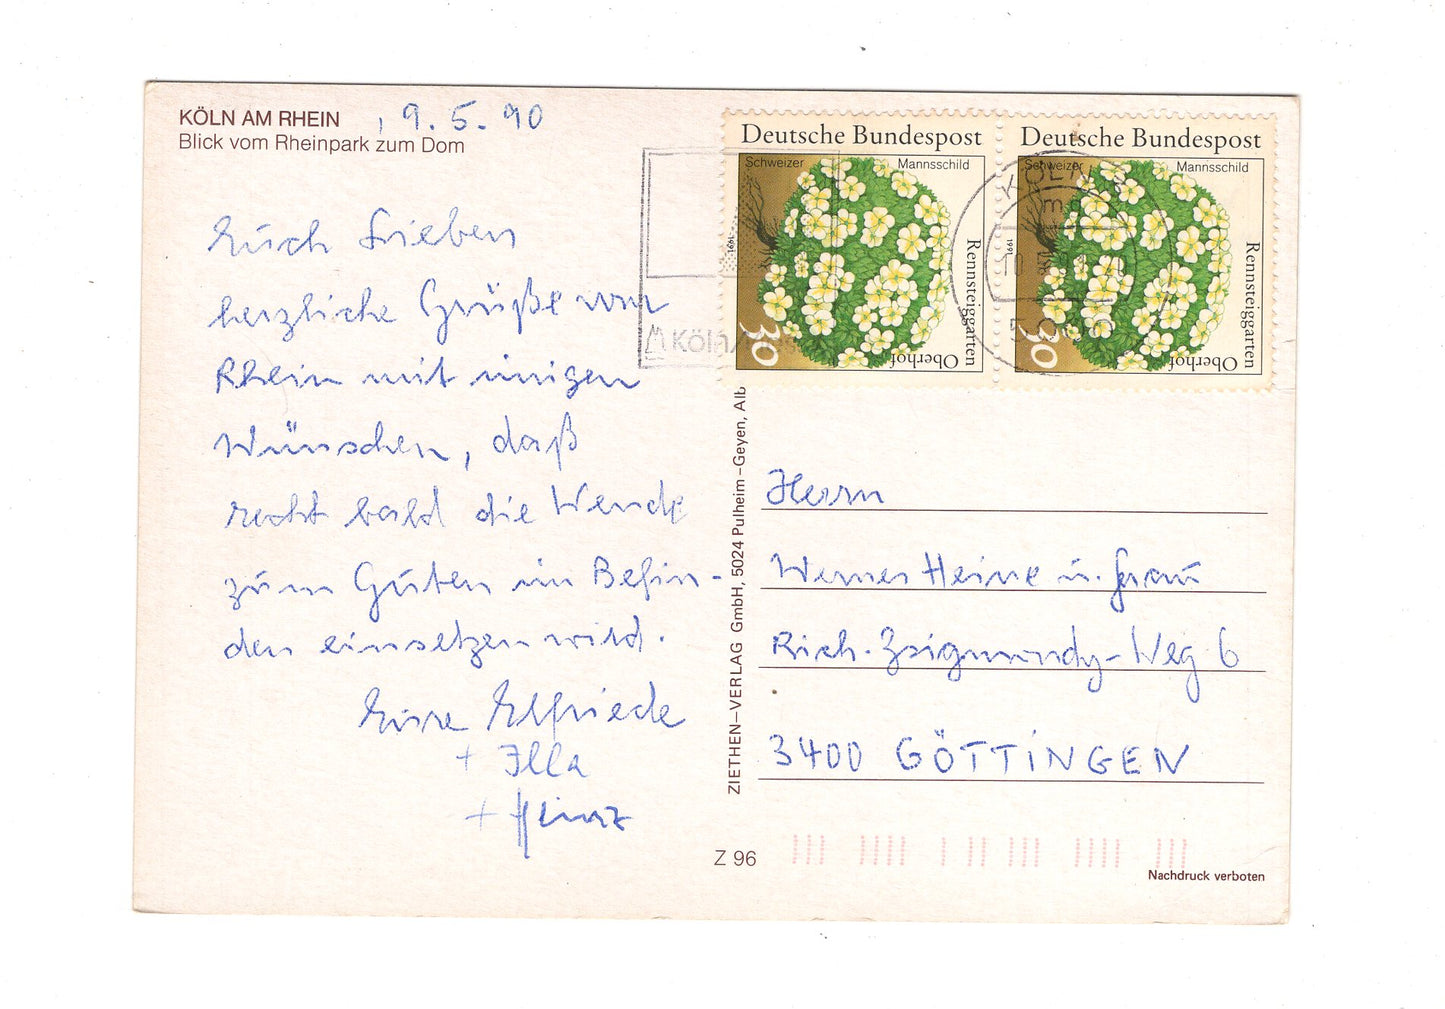 KÖLN AM RHEIN , 9.5.90
Blick vom Rheinpark zum Dom
Euch Lieben
herzliche Grüße vom
Rhein mit innigen
Wünschen, daß
recht bald die Wende
zum Guten im Befin-
den einsetzen wird.
Eure Elfriede
+ Illa
+ Heinz
Deutsche Bundespost
Schweizer Mannsschild
1991
Rennsteiggarten
Oberhof
30
Deutsche Bundespost
Schweizer Mannsschild
1991
Rennsteiggarten
Oberhof
30
KÖLN
Köln
ZIETHEN-VERLAG GmbH, 5024 Pulheim-Geyen, Alb
Herrn
Werner Heine u. Frau
Rich.-Zsigmondy-Weg 6
3400 GÖTTINGEN
Z 96
Nachdruck verboten